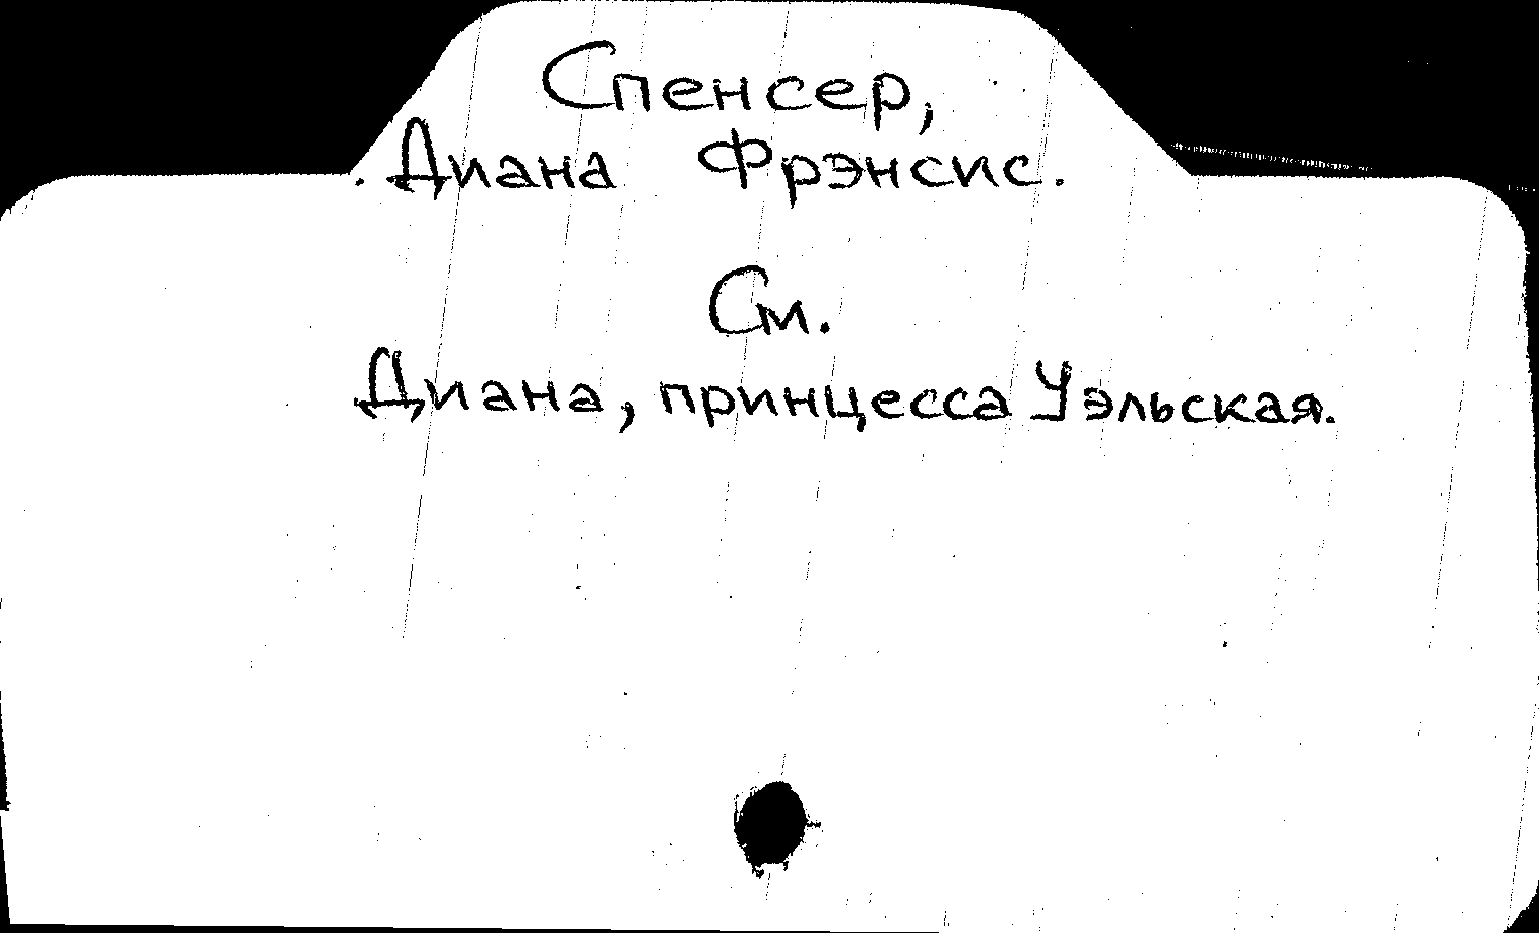 Спенсер,
Диана Фрэнсис.
См.
Диана, принцесса Уэльская.